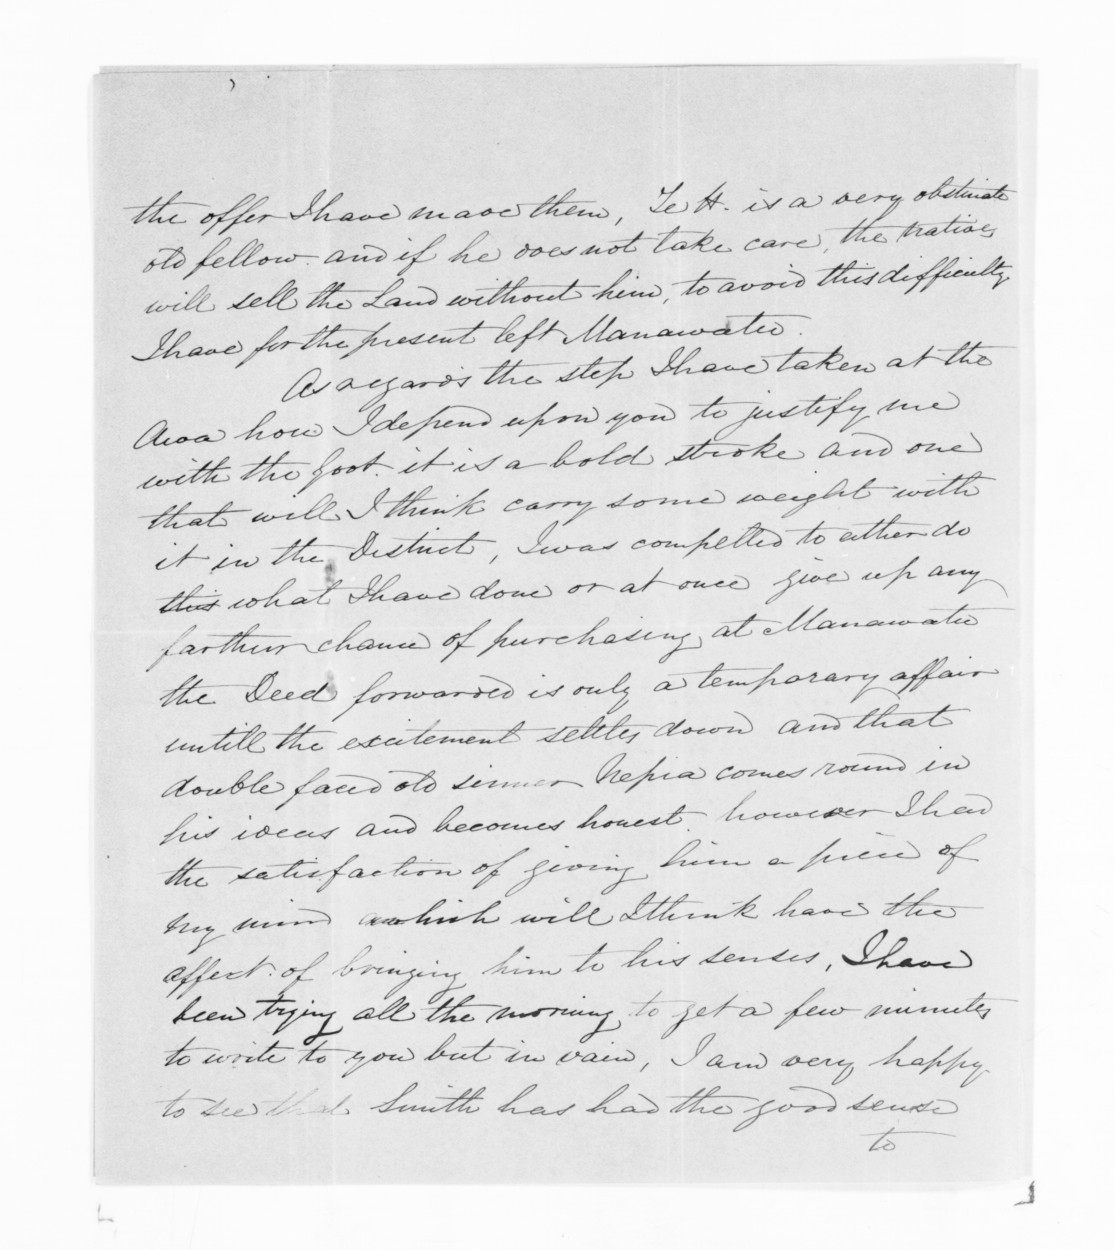 the offer I have made them, Te H. is a very obstinate
old fellow and if he does not take care, the natives
will sell the Land without him, to avoid this difficulty
I have for the present left Manawatu.
As regards the step I have taken at the
Awa hou I depend upon you to justify me
with the Govt. it is a bold stroke and one
that will I think carry some weight with
it in the District, I was compelled to either do
this what I have done or at once give up any
farther chance of purchasing at Manawatu
the Deed forwarded is only a temporary affair
untill the excitement settles down and that
double faced old sinner Nepia comes round in
his ideas and becomes honest. however I had
the satisfaction of giving him a piece of
my mind which will I think have the
effect of bringing him to his senses, I have
been trying all the morning to get a few minutes
to write to you but in vain, I am very happy
to see that Smith has had the good sense
to